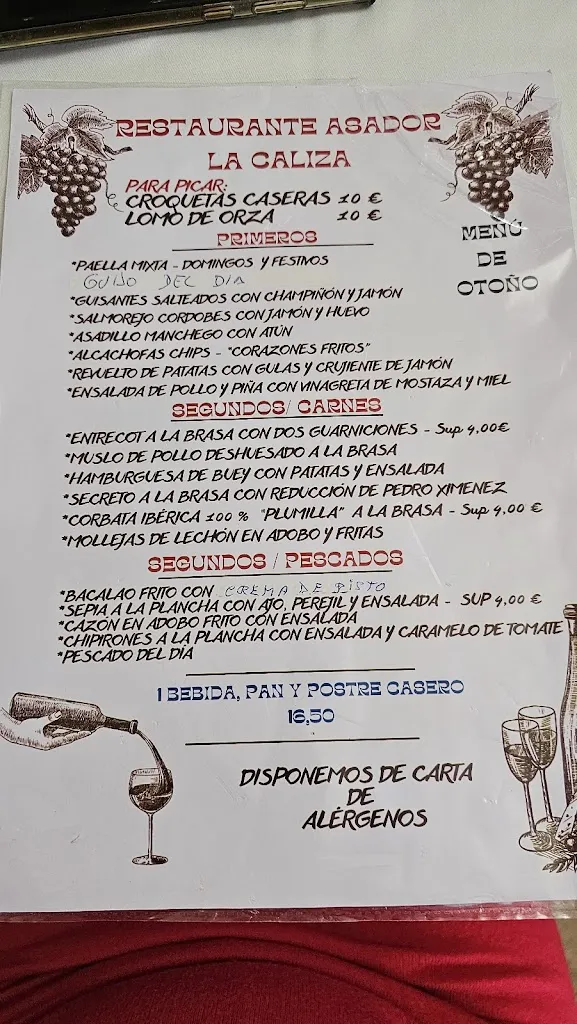 RESTAURANTE ASADOR
LA CALIZA
PARA PICAR:
CROQUETAS CASERAS 10 €
LOMO DE ORZA 10 €
MENÚ
DE
OTOÑO
PRIMEROS
*PAELLA MIXTA - DOMINGOS Y FESTIVOS
GUISO DEL DIA
*GUISANTES SALTEADOS CON CHAMPIÑÓN Y JAMÓN
*SALMOREJO CORDOBES CON JAMÓN Y HUEVO
*ASADILLO MANCHEGO CON ATÚN
*ALCACHOFAS CHIPS - "CORAZONES FRITOS"
*REVUELTO DE PATATAS CON GULAS Y CRUJIENTE DE JAMÓN
*ENSALADA DE POLLO Y PIÑA CON VINAGRETA DE MOSTAZA Y MIEL
SEGUNDOS/ CARNES
*ENTRECOT A LA BRASA CON DOS GUARNICIONES - Sup 4,00€
*MUSLO DE POLLO DESHUESADO A LA BRASA
*HAMBURGUESA DE BUEY CON PATATAS Y ENSALADA
*SECRETO A LA BRASA CON REDUCCIÓN DE PEDRO XIMENEZ
*CORBATA IBÉRICA 100 % "PLUMILLA" A LA BRASA - Sup 4,00 €
*MOLLEJAS DE LECHÓN EN ADOBO Y FRITAS
SEGUNDOS / PESCADOS
*BACALAO FRITO CON CREMA DE PISTO
*SEPIA A LA PLANCHA CON AJO, PEREJIL Y ENSALADA - SUP 4,00 €
*CAZÓN EN ADOBO FRITO CON ENSALADA
*CHIPIRONES A LA PLANCHA CON ENSALADA Y CARAMELO DE TOMATE
*PESCADO DEL DÍA
1 BEBIDA, PAN Y POSTRE CASERO
16,50
DISPONEMOS DE CARTA
DE
ALÉRGENOS